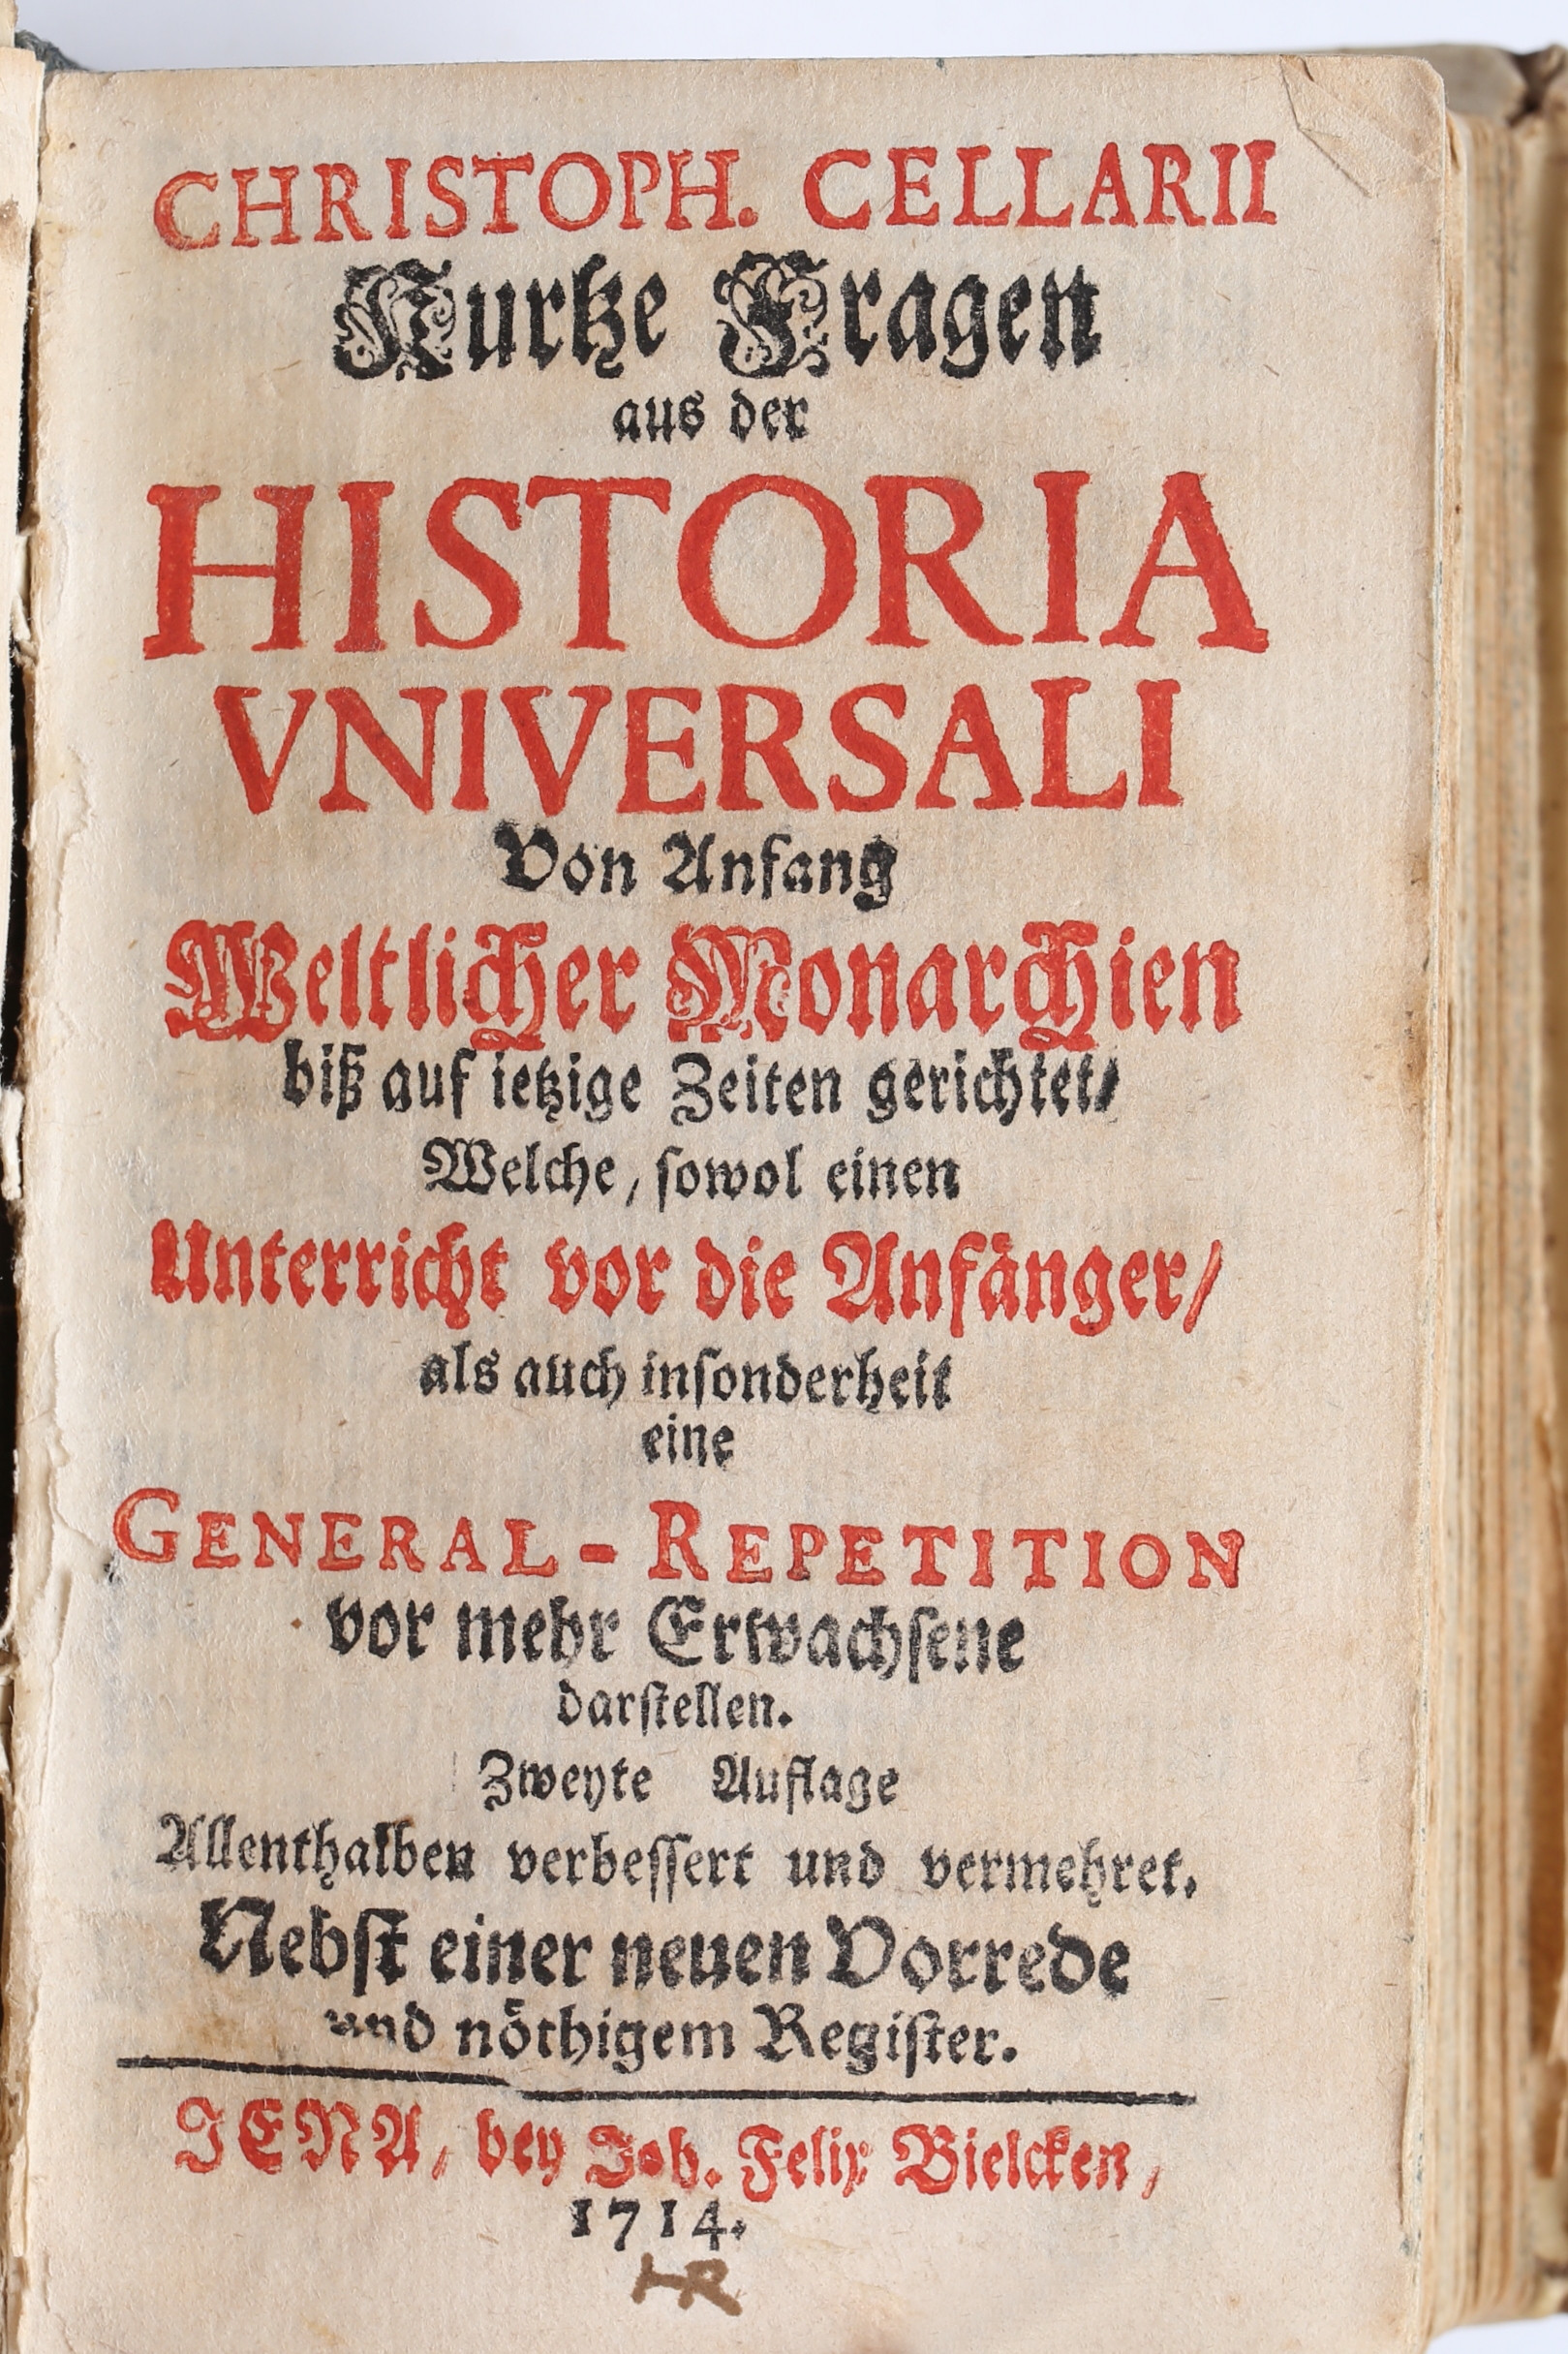 CHRISTOPH. CELLARII
Kurtze Fragen
aus der
HISTORIA
VNIVERSALI
Von Anfang
Weltlicher Monarchien
biß auf ietzige Zeiten gerichtet/
Welche, sowol einen
Unterricht vor die Anfänger/
als auch insonderheit
eine
GENERAL-REPETITION
vor mehr Erwachsene
darstellen.
Zweyte Auflage
Allenthalben verbessert und vermehret.
Nebst einer neuen Vorrede
und nöthigem Register.
JENA, bey Joh. Felix Bielcken,
1714.